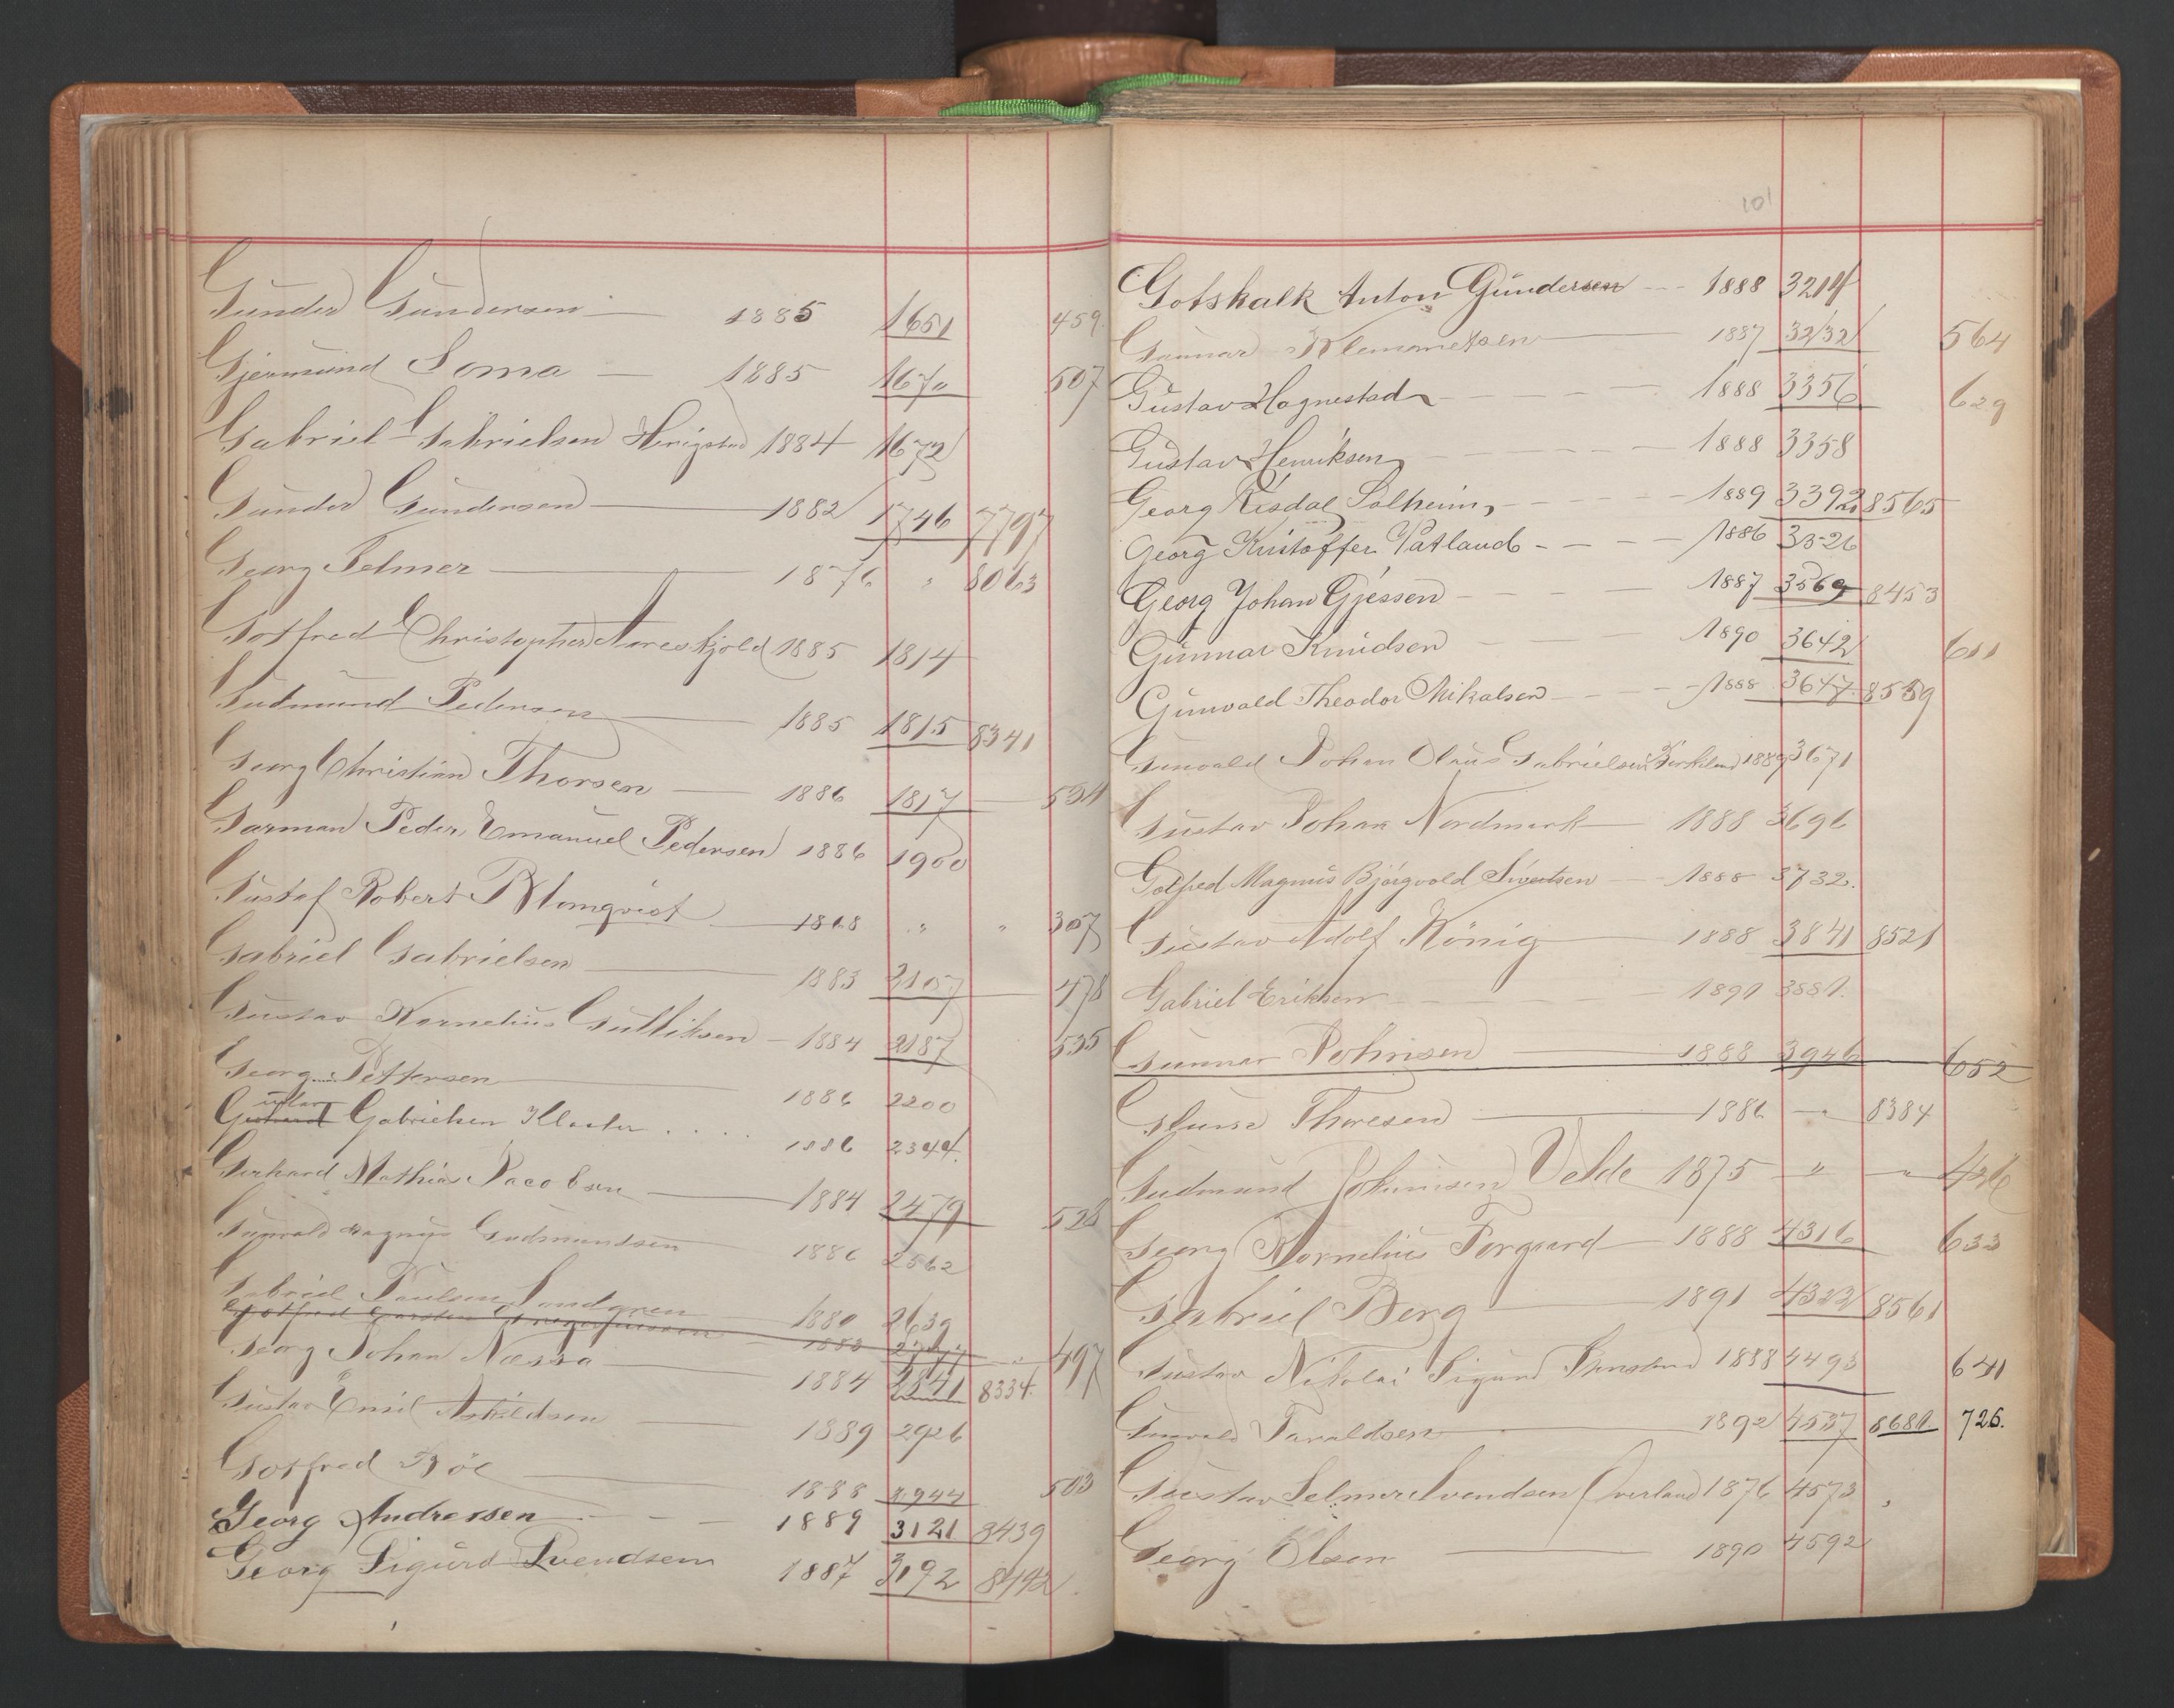 Gunder Gundersen — 1885 1651 459.
Gjermund Soma — 1885 1670 507
Gabriel Gabrielsen Herigstad 1884 1672
Gunder Gundersen — 1882 1746 7797
Georg Selmer — 1876 " 8063
Gotfred Christopher Aareskjold 1885 1814
Gudmund Pedersen — 1885 1815 8341
Georg Christian Thorsen — 1886 1817 — 534
Garman Peder, Emanuel Pedersen 1886 1900
Gustaf Robert Blomqvist — 1868 " " 307
Gabriel Gabrielsen — 1883 2107 — 478
Gustav Kornelius Gulliksen — 1884 2187 535
Georg Pettersen — 1886 2200
Gustav Gabrielsen Kloster . . . . 1886 2344.
Gerhard Mathias Jacobsen — 1884 2479 528
Gunvald Magnus Gudmundsen 1886 2562
Gabriel Paulsen Landgren 1880 2639
Gotfred 1883 — " 497
Georg Johan Næssa — 1884 2841 8334.
Gustav Emil Askildsen — 1889 2926
Gotfred Bøe — 1888 2944 503
Georg Andressen - - - 1889 3121 8439
Georg Sigurd Svendsen 1887 3192 8442
101
Gotskalk Anton Gundersen - - - 1888 3214
Gunnar Klemmetsen — 1887 3232 564
Gustav Hognestad - - - - 1888 3356 629
Gustav Henriksen - - - - - 1888 3358
Georg Risdal Solheim, - - - - 1889 3392 8565
Georg Kristoffer Vatland - - - - 1886 3526
Georg Johan Gjessen - - - - 1887 3569 8453
Gunnar Knudsen - - - 1890 3642 611
Gunvald Theodor Mikalsen - - - - 1888 3647 8559
Gunvald Johan Olaus Gabrielsen Birkeland 1889 3671
Gustav Johan Nordmark — 1888 3696
Gotfred Magnus Bjørgvald Sivertsen — 1888 3732.
Gustav Adolf König — 1888 3841 8521
Gabriel Eriksen - - - 1891 3881.
Gunnar Johnsen — 1888 3946 — 652
Thoresen — 1886 — " 8384
Gudmund Johannesen Velde 1875 — " — " 426
Georg Kornelius Forgaard — 1888 4316 633
Gabriel Berg — 1891 4322 8561
Gustav Nikolai Sigurd 1888 4493 641
Gunvald Taraldsen — 1892 4537 8681. 726.
Gustav Selmer Svendsen Overland 1876 4573 "
Georg Olsen — 1890 4592